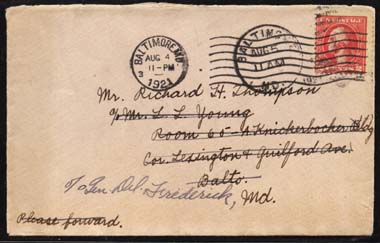 BALTIMORE, MD.
AUG 4
11-PM
3
1921
BALTIMORE
AUG
11 AM
MD.
Mr. Richard H. Thompson
c/o Mr. L. L. Young
Room 65- A Knickerbocker Bldg
Cor. Lexington & Guilford Ave.
Balto.
c/o Gen Del. Frederick, Md.
Please forward.